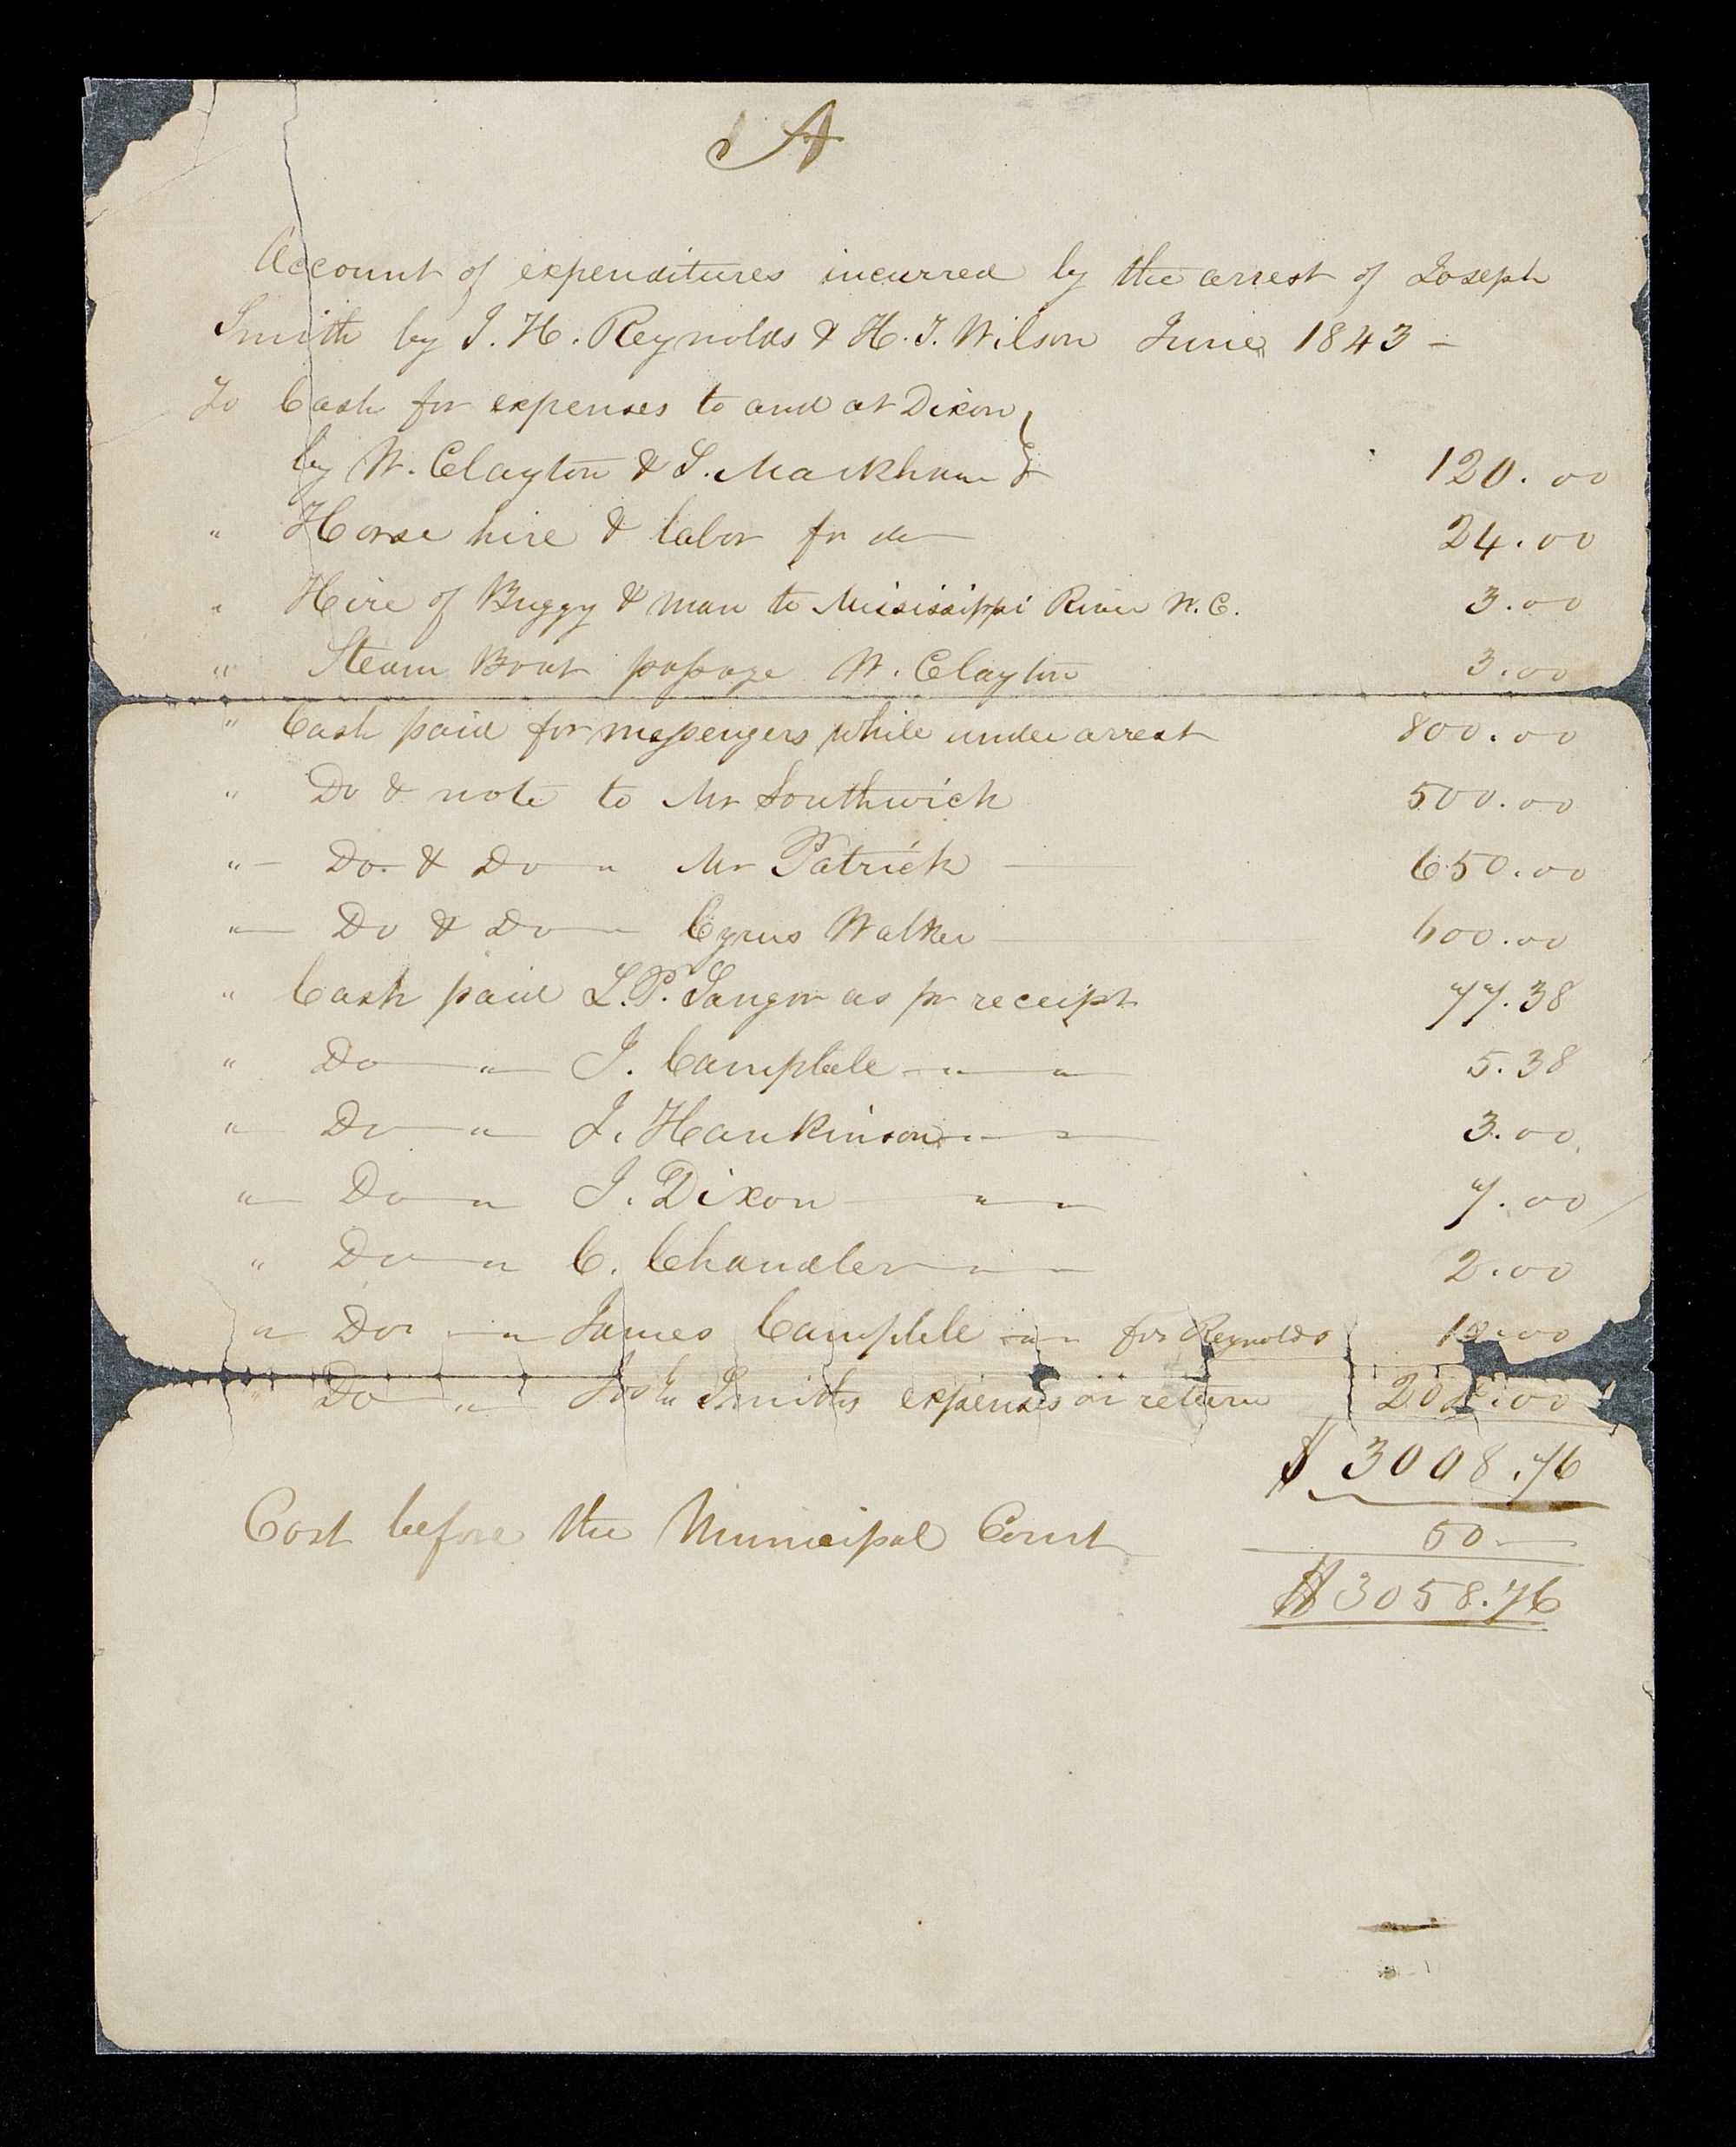 A
Account of expenditures incurred by the arrest of Joseph
Smith by J. H. Reynolds & H. T. Wilson June 1843 –
To Cash for expenses to and at Dixon
by W. Clayton & S. Markham 120.00
" Horse hire & labor for do — 24.00
" Hire of Buggy & man to Missisippi River W. C. 3.00
" Steam Boat passage W. Clayton 3.00
" Cash paid for messengers while under arrest 800.00
" Do & note to Mr Southwick 500.00
" — Do. & Do — " Mr Patrick — 650.00
" — Do & Do — " — Cyrus Walker — 600.00
" Cash paid L. P. Sanger as pr receipt 77.38
" Do — " — J. Campbele — " — " — 5.38
" — Do — " — J. Hankinson — " — " — 3.00
" — Do — " — J. Dixon — " — " — 7.00
" Do — " C. Chandler — " — " — 2.00
" — Do — " — James Campbele — " — for Reynolds
" Do — " — Jos. Smiths expenses on return
$ 3008.76
Cost before the Municipal Court 50 —
$ 3058.76